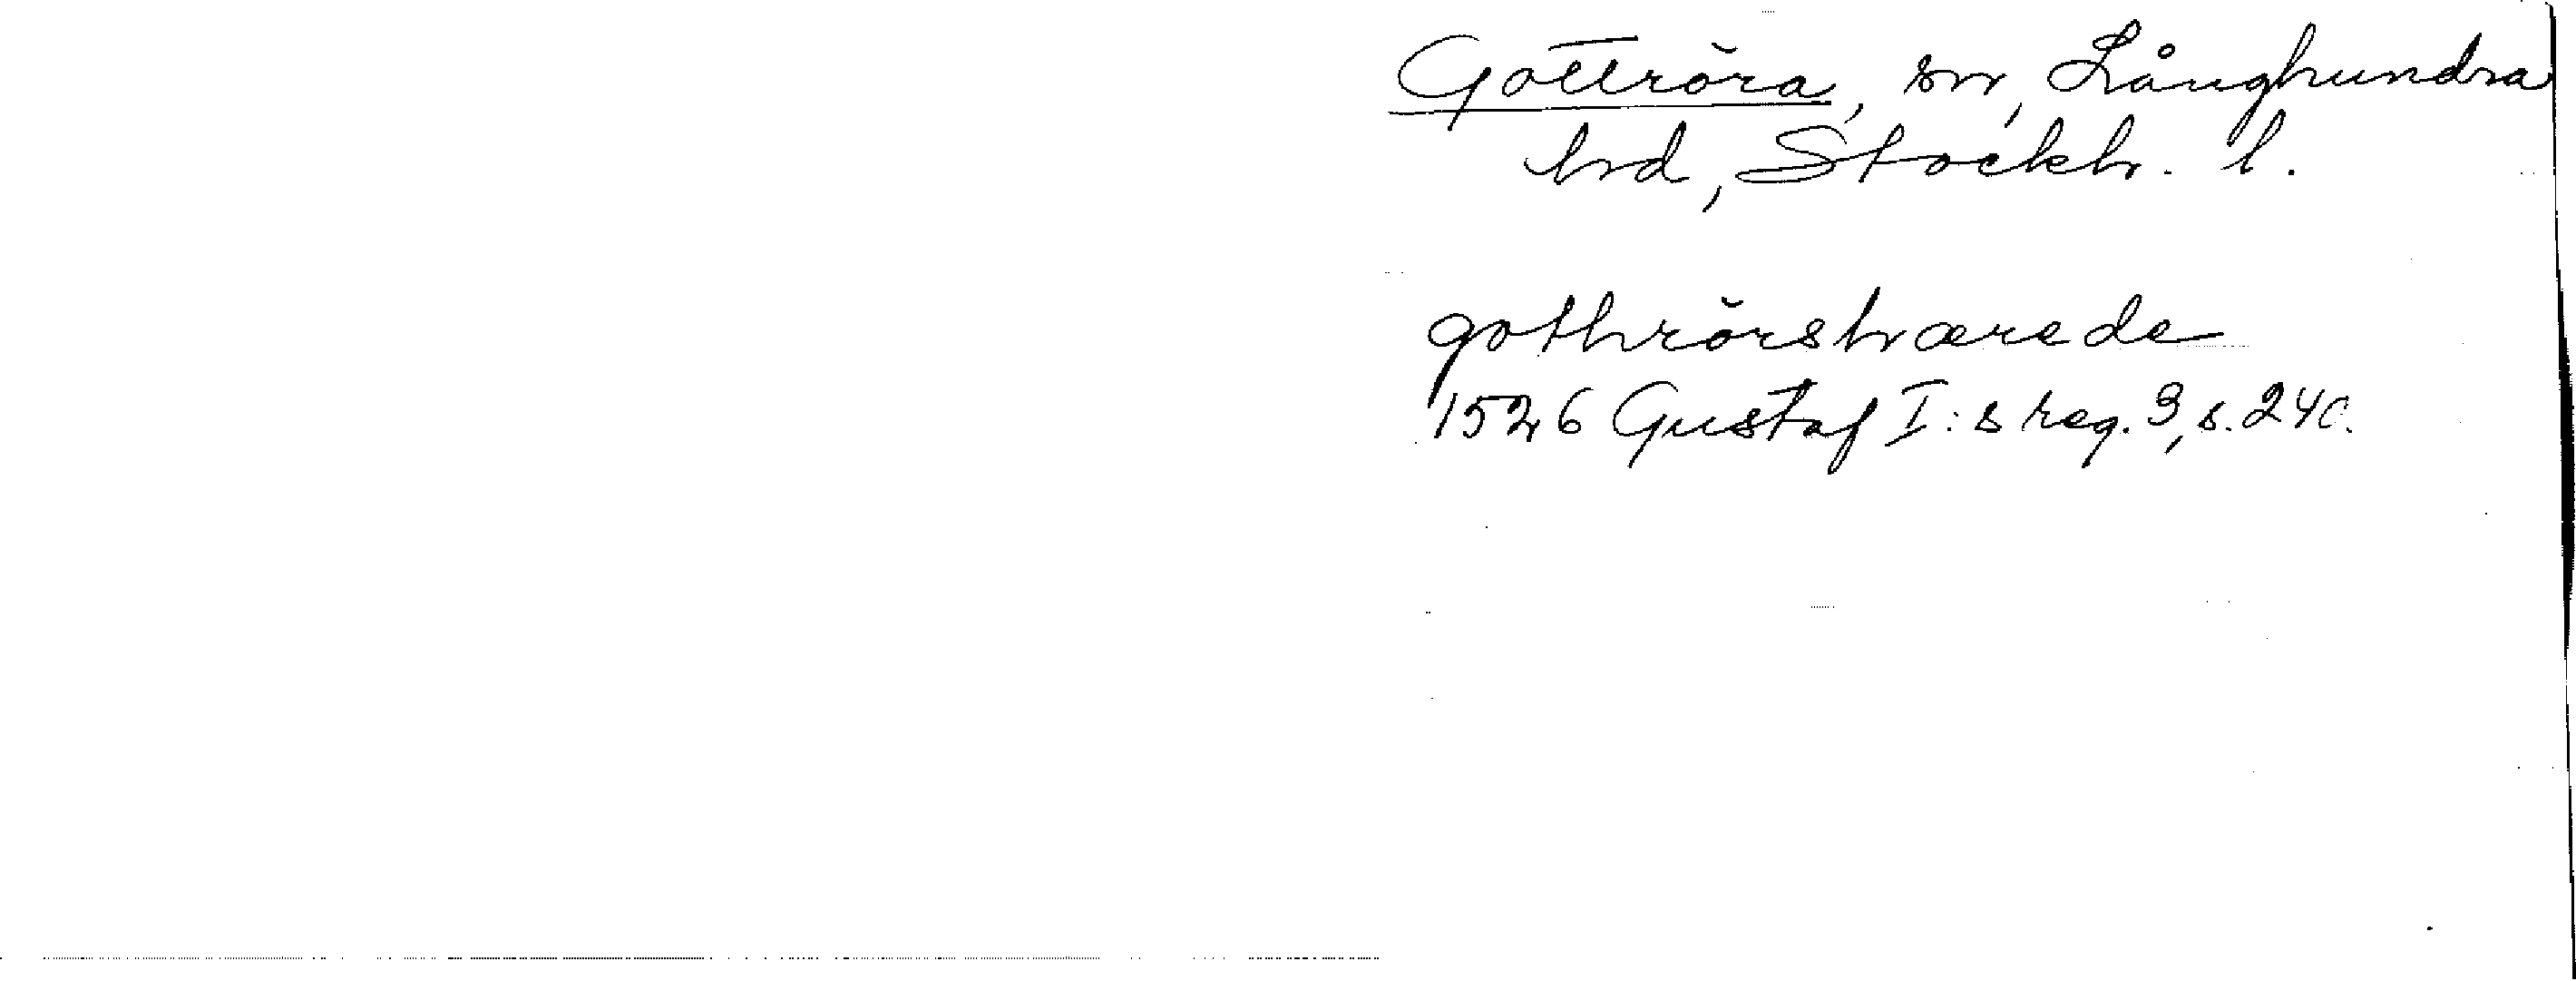 Gottröra, sn, Långhundra
hd, Stockh. l.
gothrörshærede
1526 Gustaf I:s reg. 3, s. 240.